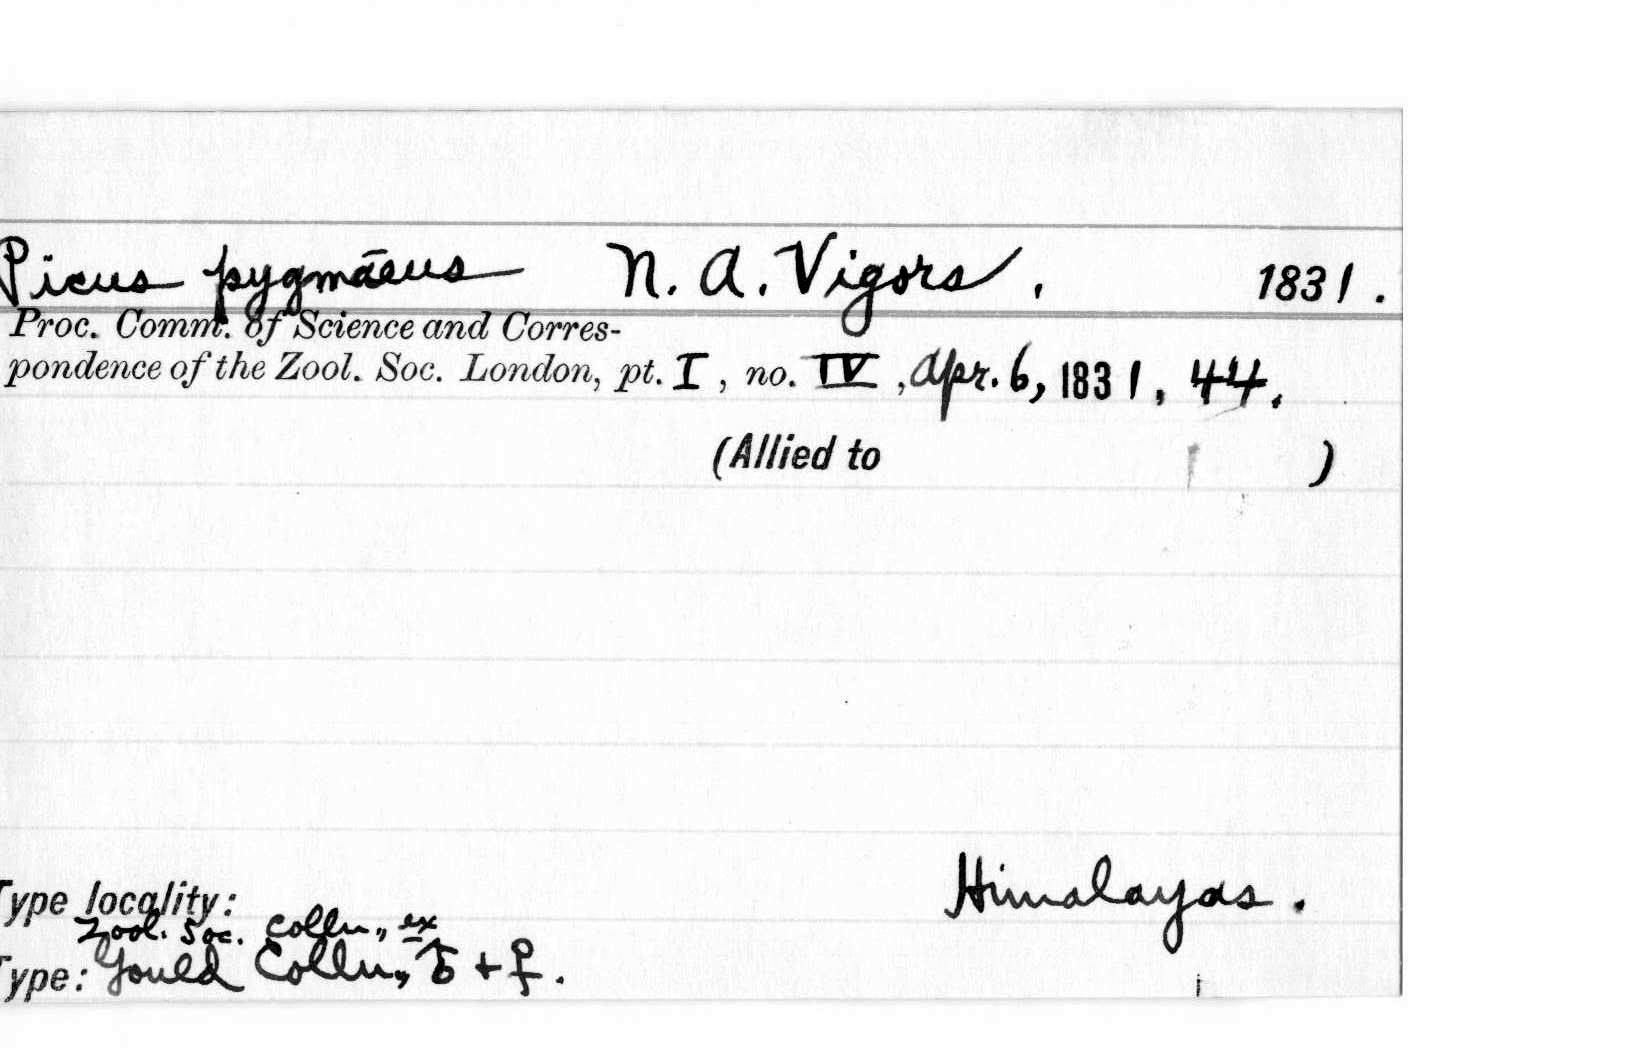 Picus pygmāeus N. A. Vigors, 1831.
Proc. Comm. of Science and Corres-
pondence of the Zool. Soc. London, pt. I, no. IV, Apr. 6, 1831, 44.
(Allied to )
Type locality: Himalayas.
Zool. Soc. Colln., ex
Type: Gould Colln., ♂ + ♀.